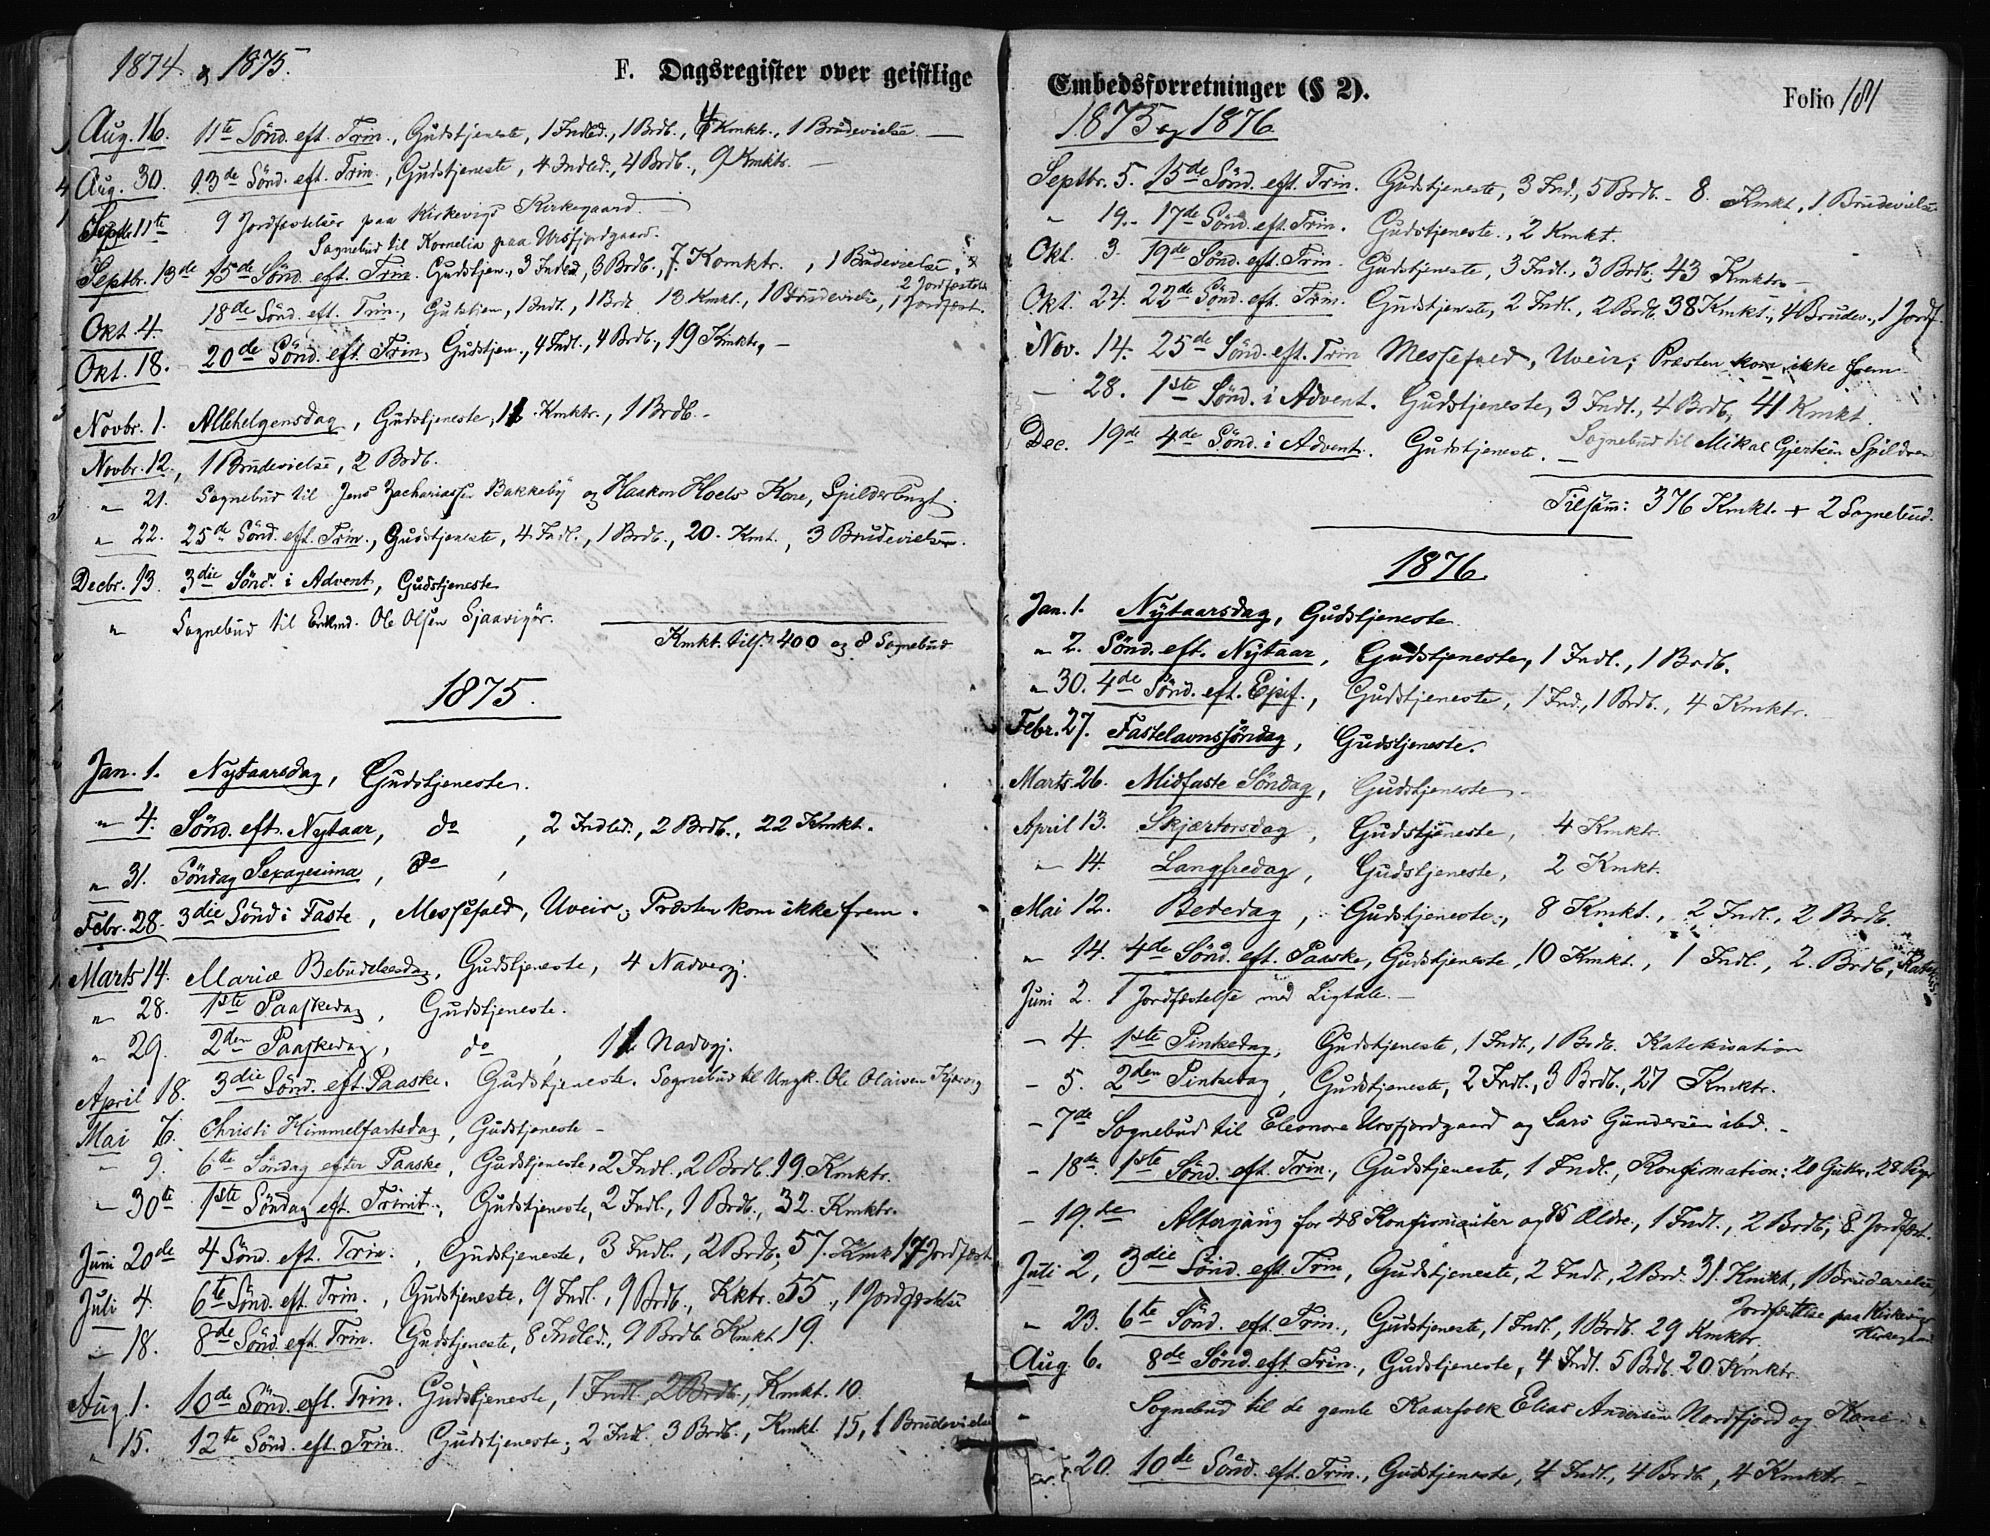 1874 & 1875.
F. Dagsregister over geistlige
Aug. 16. 11te Sönd. eft. Trin., Gudstjeneste, 1 Indled., 1 Brdb., 4 Kmktr., 1 Brudevielse. —
Aug. 30. 13de Sönd. eft. Trin., Gudstjeneste, 4 Indled., 4 Brdb., 9 Kmktr. —
Septbr 11te 9 Jordfæstelser paa Kirkevigs Kirkegaard. —
Sognebud til Kornelia paa Ursfjordgaard.
Septbr. 13de 15de Sönd. eft. Trin. Gudstjen., 3 Indled, 3 Brdb., 7 Komktr., 1 Brudevielse,
2 Jordfæstels
Okt. 4. 18de Sönd. eft. Trin., Gudstjen., 1 Indl., 1 Brd. 13 Kmkt., 1 Brudevielse, 1 Jordfæst.
Okt. 18. 20de Sönd. eft. Trin, Gudstjen., 4 Indl., 4 Brdb., 19 Kmktr. —
Novbr. 1. Allehelgensdag, Gudstjeneste, 11 Kmktr., 1 Brdb. -
Novbr. 12., 1 Brudevielse, 2 Brdb.
" 21. Sognebud til Jens Zachariassen Bakkeby og Haakon Hoels Kone, Spilderbugt.
" 22. 25de Sönd. eft. Trin., Gudstjeneste, 4 Indl., 1 Brdb., 20 Kmt., 3 Brudevielser.
Decbr. 13. 3die Sönd. i Advent, Gudstjeneste
" Sognebud til Enkmd. Ole Olsen Sjaavigör.
Kmkt. tils. 400 og 8 Sognebud
1875.
Jan. 1. Nytaarsdag, Gudstjeneste.
" 4. Sönd. eft. Nytaar, do, 2 Indled., 2 Brdb., 22 Kmkt.
" 31. Söndag Sexagesima, do,
Febr. 28. 3die Sönd i Faste, Messefald, Uveir; Præsten kom ikke frem.
Marts 14. Mariæ Bebudelsesdag, Gudstjeneste, 4 Nadvergj.
" 28. 1ste Paaskedag, Gudstjeneste.
" 29. 2den Paaskedag, do, 11 Nadvgj.
April 18. 3die Sönd. eft. Paaske. Gudstjeneste. Sognebud til Ungk. Ole Olaisen
Mai 6. Christi Himmelfartsdag, Gudstjeneste -
" 9. 6te Söndag efter Paaske, Gudstjeneste, 2 Indl., 2 Brdb. 19 Kmktr.
" 30te 1ste Söndag eft. Trinit., Gudstjeneste, 2 Indl., 1 Brdb., 32 Kmktr.
Juni 20de 4 Sönd. eft. Trin., Gudstjeneste, 3 Indl., 2 Brdb., 57 Kmk 17 Jordfæst
Juli 4. 6te Sönd. eft. Trin., Gudstjeneste, 9 Indl., 9 Brdb., Kktr. 55, 1 Jordfæstelse
" 18. 8de Sönd. eft. Trin. Gudstjeneste, 8 Indled., 9 Brdb. Kmkt. 19.
Aug. 1. 10de Sönd. eft. Trin. Gudstjeneste, 1 Indl. 2 Brdb., Kmkt. 10.
" 15. 12te Sönd. eft. Trin. Gudstjeneste; 2 Indl. 3 Brdb., Kmkt 15, 1 Brudevielse
Embedsforretninger (§ 2).
Folio 181
1875 og 1876
Septbr. 5. 15de Sönd. eft. Trin. Gudstjeneste, 3 Ind., 5 Brdb. - 8. Kmkt., 1 Brudevielse
" 19. - 17de Sönd. eft. Trin. Gudstjeneste., 2 Kmkt.
Okt. 3. 19de Sönd. eft. Trin. Gudstjeneste, 3 Indl., 3 Brdb. 43 Kmktr. -
Okt. 24. 22de Sönd. eft. Trin. Gudstjeneste, 2 Indl., 2 Brdb. 38 Kmkt., 4 Brudev., 1 Jordf.
Nov. 14. 25de Sönd. eft. Trin Messefald, Uveir; Præsten kom ikke frem
— 28. 1ste Sönd. i Advent. Gudstjeneste, 3 Indl., 4 Brdb, 41 Kmkt.
Dec. 19de 4de Sönd. i Advent. Gudstjeneste. — Sognebud til Mikal Gjertsen Spildren
Tilsam: 376 Kmkt. + 2 Sognebud.
1876.
Jan. 1. Nytaarsdag, Gudstjeneste
" 2. Sönd. eft. Nytaar, Gudstjeneste, 1 Indl., 1 Brdb.
" 30. 4de Sönd. eft. Epif., Gudstjeneste, 1 Ind., 1 Brdb., 4 Kmktr.
Febr. 27. Fastelavnssöndag, Gudstjeneste.
Marts. 26. Midfaste Söndag, Gudstjeneste -
April 13. Skjærtorsdag, Gudstjeneste, 4 Kmktr.
" 14. Langfredag, Gudstjeneste, 2 Kmkt.
Mai 12. Bededag, Gudstjeneste, 8 Kmkt., 2 Indl., 2 Brdb.
" 14. 4de Sönd. eft. Paaske, Gudstjeneste, 10 Kmkt., 1 Indl., 2 Brdb,
Juni 2. 1 Jordfæstelse med Ligtale. —
— 4. 1ste Pinkedag, Gudstjeneste, 1 Indl., 1 Brdb. Katekisation
- 5. 2den Pinkedag, Gudstjeneste, 2 Indl., 3 Brdb., 27 Kmktr.
- 7de Sognebud til Eleonore Ursfjordgaard og Lars Gundersen ibd. -
- 18de. 1ste Sönd. eft. Trin., Gudstjeneste, 1 Indl., Konfirmation: 20 Gutter, 28 Piger
- 19.de Altergang for 48 Konfirmanter og 85 Ældre., 1 Indl., 2 Brdb, 8 Jordfæst.
Juli 2, 3die Sönd. eft. Trin, Gudstjeneste, 2 Indl., 2 Brd. 31. Kmkt, 1 Brudevielse
" 23. 6te Sönd. eft. Trin., Gudstjeneste, 1 Indl., 1 Brdb. 29 Kmktr. Jordfæstelse paa Kirkevigs Kirkegaard
Aug. 6. 8de Sönd. eft. Trin., Gudstjeneste, 4 Indl. 5 Brdb. 20 Kmktr.
" Sognebud til de gamle Kaarfolk Elias Andersen Nordfjord og Kone.
" 20. 10de Sönd. eft. Trin., Gudstjeneste, 4 Indl., 4 Brdb, 4 Kmktr. -